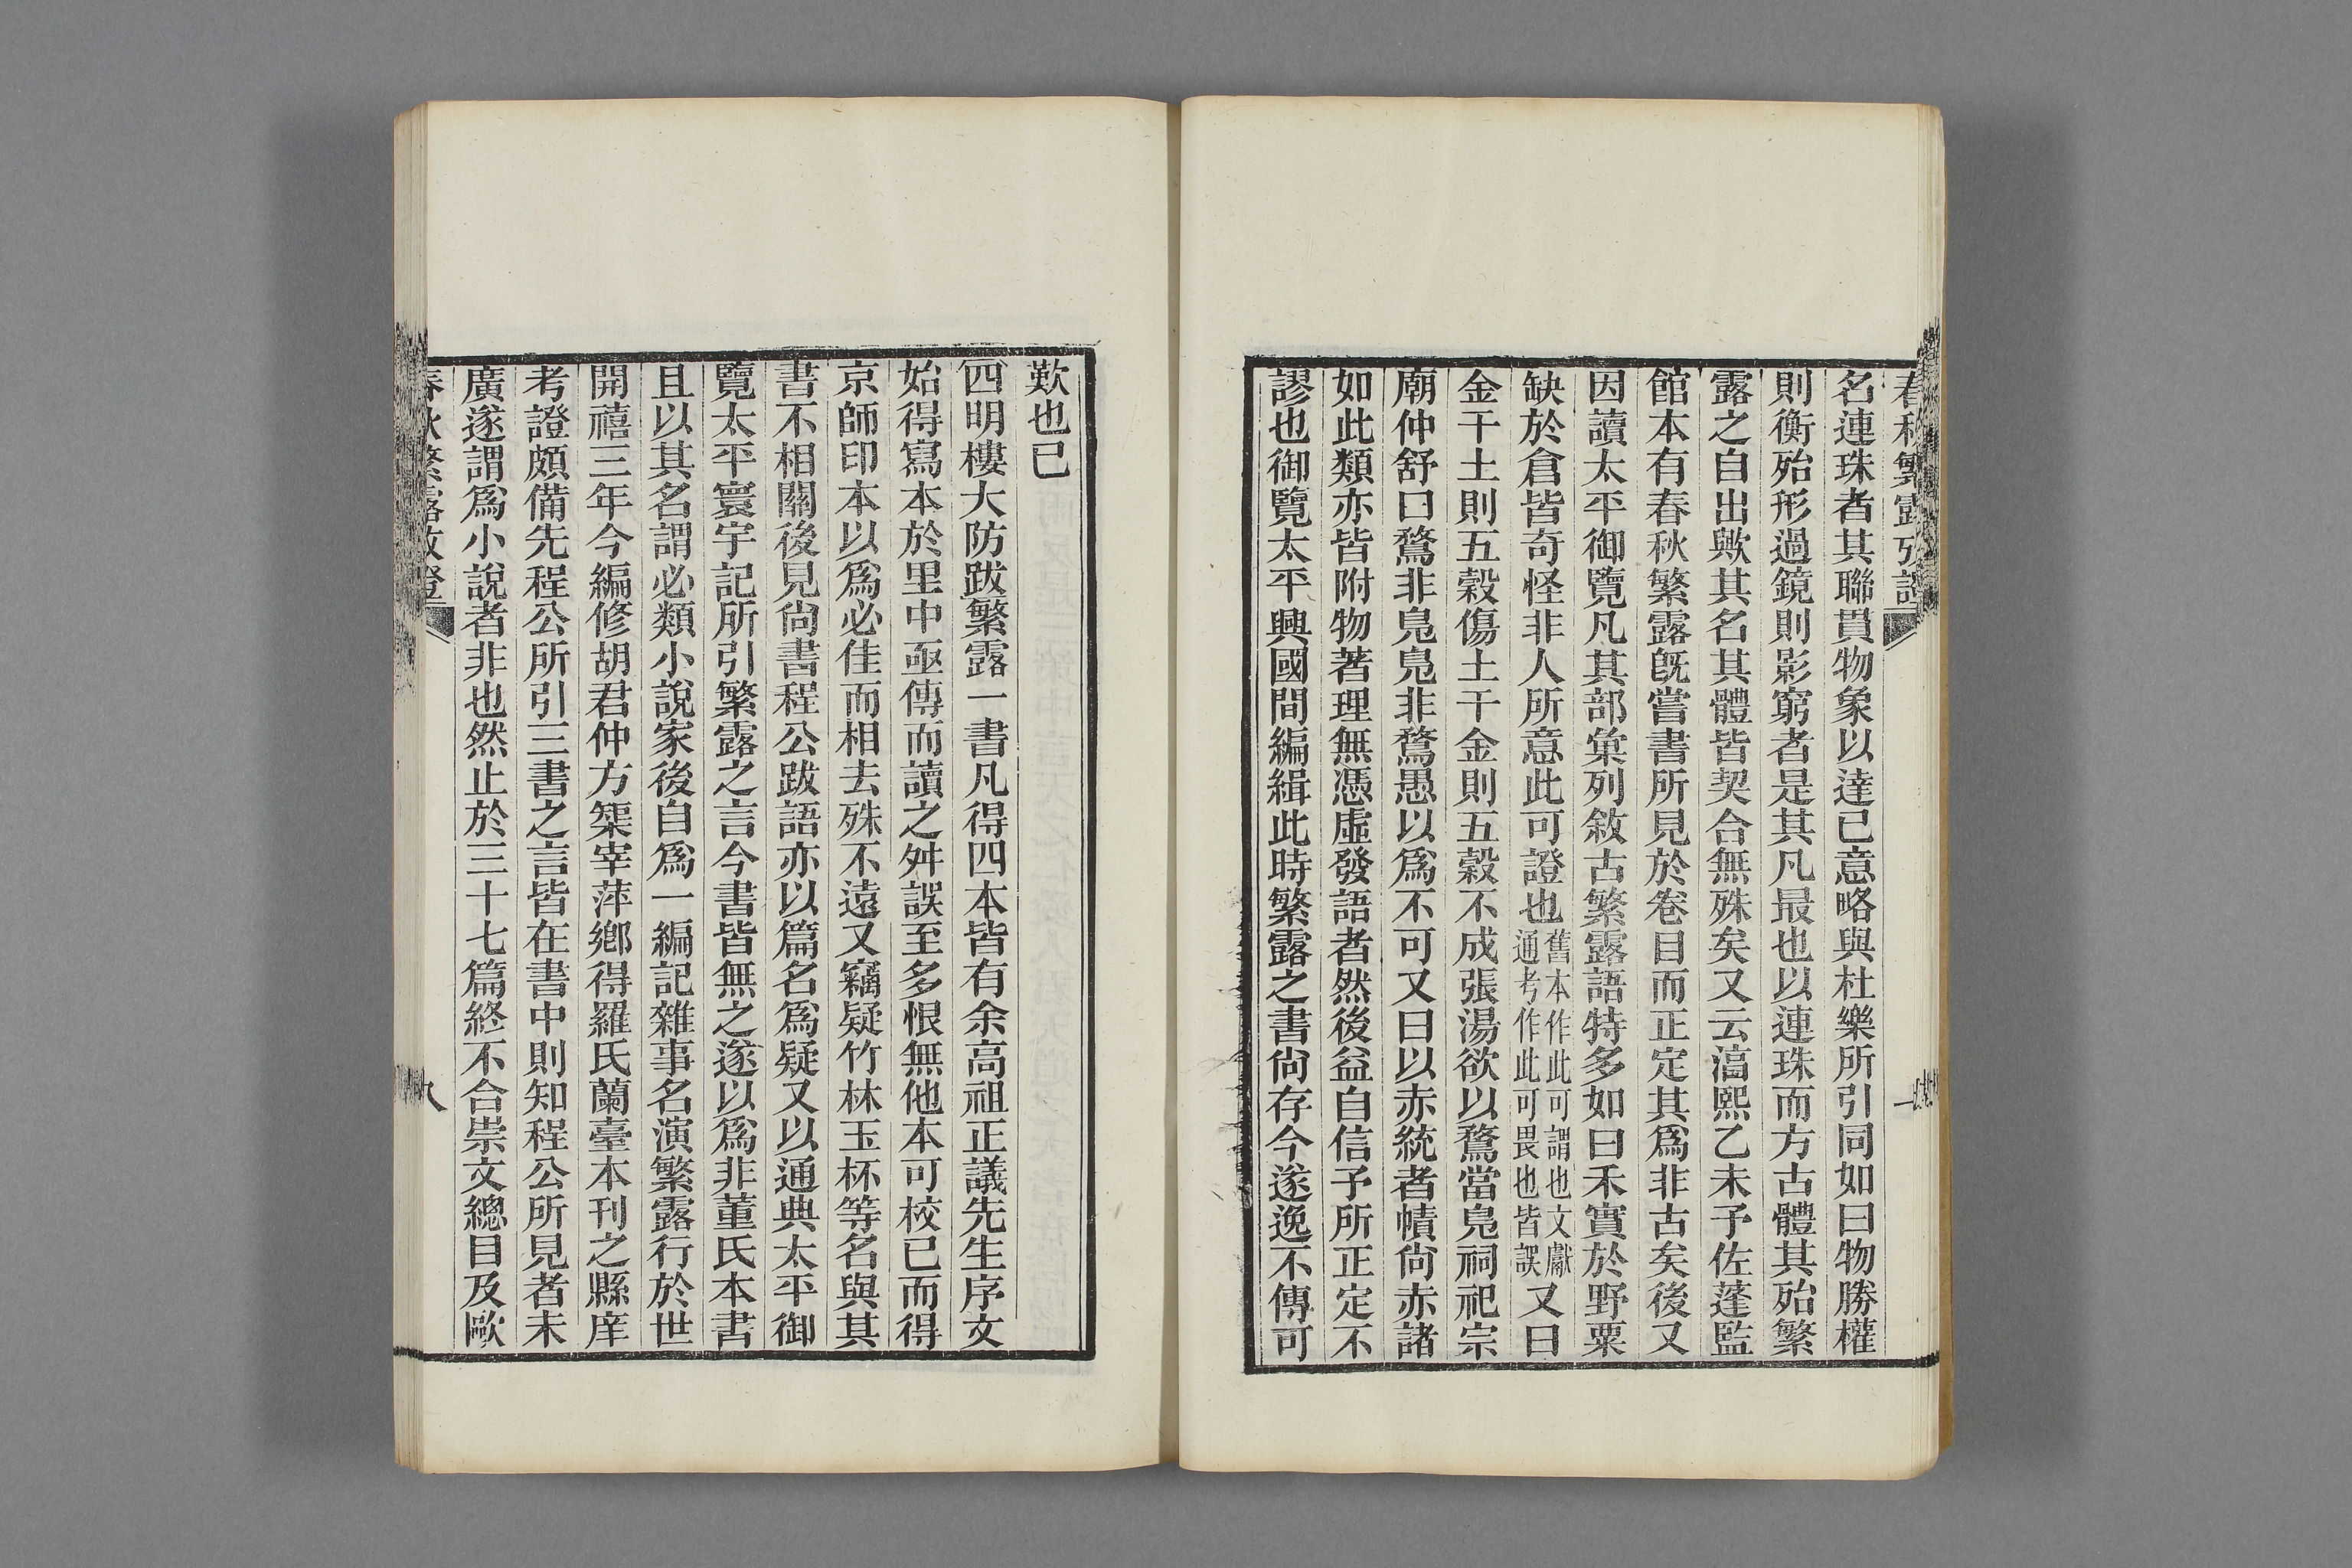 春秋繁露攷證
名連珠者其聯貫物象以達已意略與杜樂所引同如曰物勝權
則衡殆形過鏡則影窮者是其凡最也以連珠而方古體其殆繁
露之自出歟其名其體皆契合無殊矣又云淳熙乙未予佐蓬監
館本有春秋繁露旣嘗書所見於卷目而正定其爲非古矣後又
因讀太平御覽凡其部彙列敘古繁露語特多如曰禾實於野粟
缺於倉皆奇怪非人所意此可證也舊本作此可謂也文獻通考作此可畏也皆誤又曰
金干土則五穀傷土干金則五穀不成張湯欲以鶩當鳧祠祀宗
廟仲舒曰鶩非鳧鳧非鶩愚以爲不可又曰以赤統者幘尙赤諸
如此類亦皆附物著理無憑虛發語者然後益自信予所正定不
謬也御覽太平興國間編緝此時繁露之書尙存今遂逸不傳可
歎也已
四明樓大防跋繁露一書凡得四本皆有余高祖正議先生序文
始得寫本於里中亟傳而讀之舛誤至多恨無他本可校已而得
京師印本以爲必佳而相去殊不遠又竊疑竹林玉杯等名與其
書不相關後見尙書程公跋語亦以篇名爲疑又以通典太平御
覽太平寰宇記所引繁露之言今書皆無之遂以爲非董氏本書
且以其名謂必類小說家後自爲一編記雜事名演繁露行於世
開禧三年今編修胡君仲方榘宰萍鄕得羅氏蘭臺本刊之縣庠
考證頗備先程公所引三書之言皆在書中則知程公所見者未
廣遂謂爲小說者非也然止於三十七篇終不合崇文總目及歐
春秋繁露攷證
八